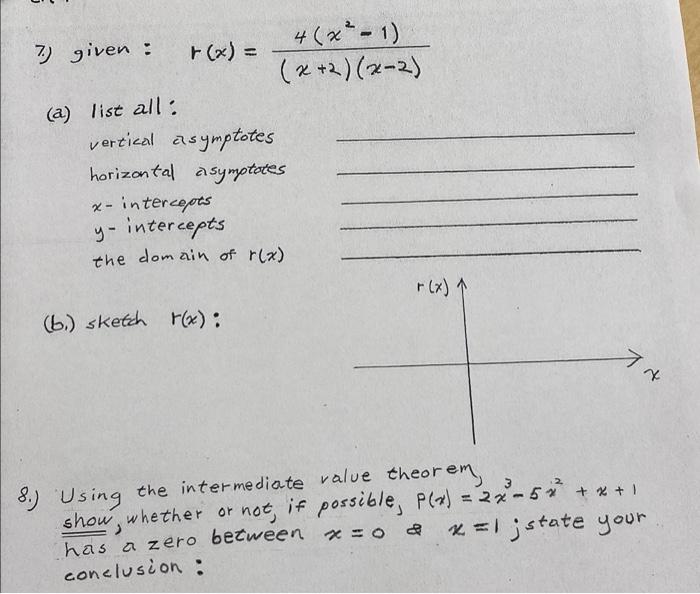 7.) given : r(x) = 4(x² - 1) / (x+2)(x-2)
(a) list all :
vertical asymptotes
horizontal asymptotes
x-intercepts
y-intercepts
the domain of r(x)
r(x)
(b.) sketch r(x) :
x
8.) Using the intermediate value theorem,
show, whether or not, if possible, P(x) = 2x³ - 5x² + x + 1
has a zero between x = 0 & x = 1 ; state your
conclusion :